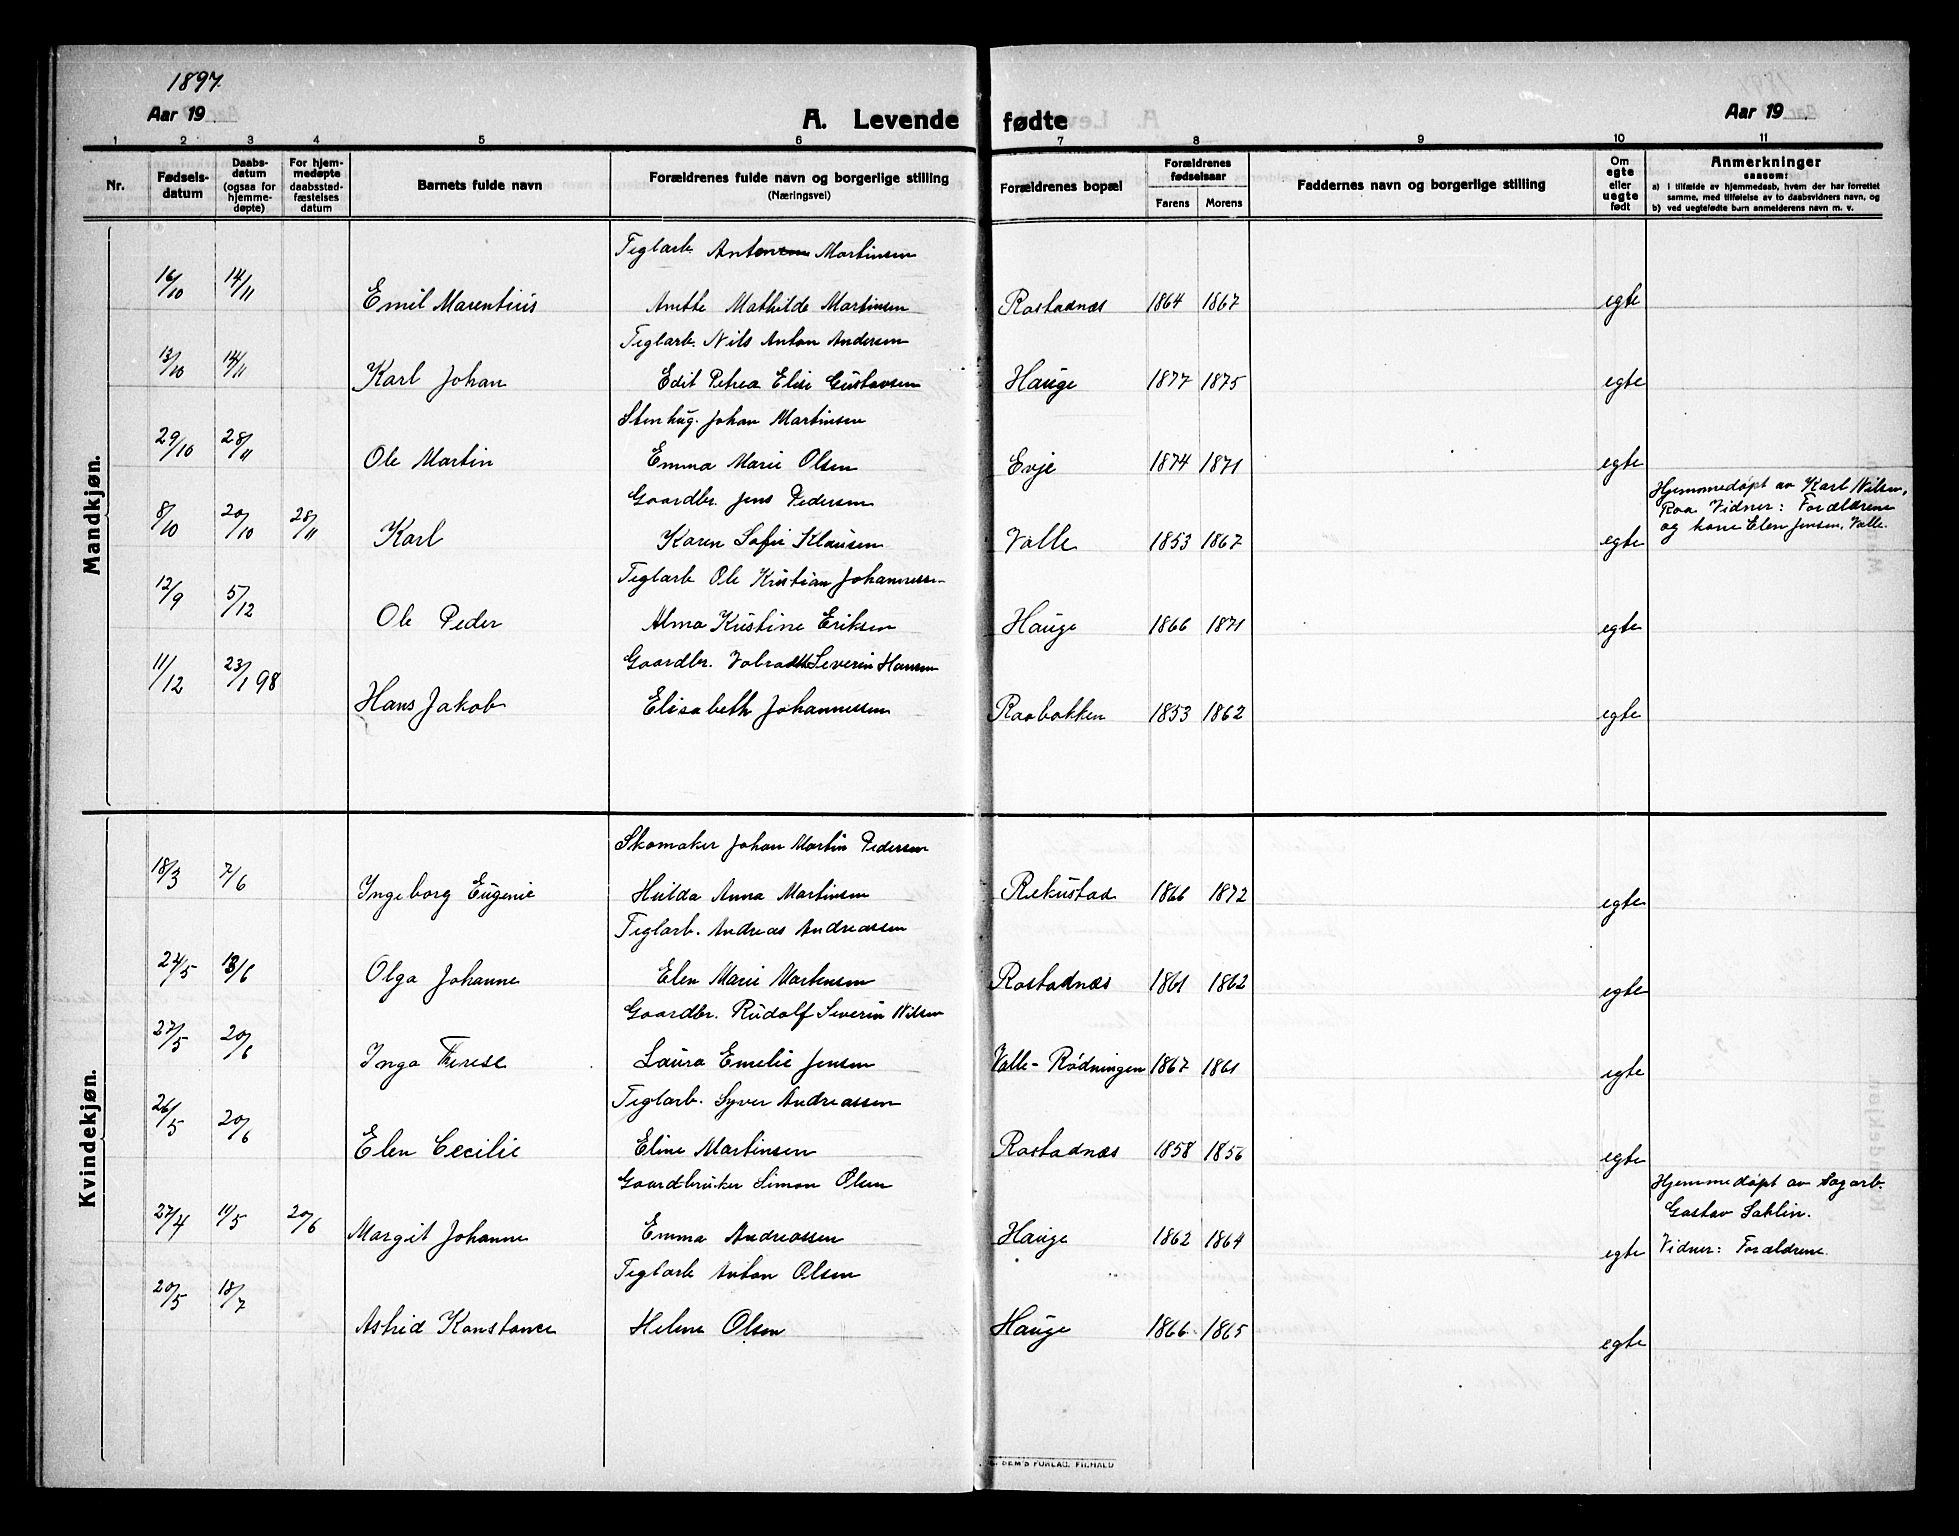 1897.
Aar 19
A. Levende fødte
Aar 19
1 2 3 4 5 6 7 8 9 10 11
Nr.
Fødselsdatum
Daabsdatum (ogsaa for hjemmedøpte)
For hjemmedøpte daabsstadfæstelses datum
Barnets fulde navn
Forældrenes fulde navn og borgerlige stilling
(Næringsvei)
Forældrenes bopæl
Forældrenes fødselsaar
Farens Morens
Faddernes navn og borgerlige stilling
Om egte eller uegte født
Anmerkninger
saasom:
a) i tilfælde av hjemmedaab, hvem der har forrettet samme, med tilføielse av to daabsvidners navn, og
b) ved uegtefødte barn anmelderens navn m. v.
Mandkjøn.
Teglarb. Anton Martinsen
16/10 14/11 Emil Marentius Anette Mathilde Martinsen Rostadnæs 1864 1867 egte
Teglarb. Nils Anton Andersen
13/10 14/11 Karl Johan Edit Petrea Elise Gustavsen Hauge 1877 1875 egte
Stenhug. Johan Martinsen
29/10 28/11 Ole Martin Emma Marie Olsen Evje 1874 1871 egte
Gaardbr. Jens Pedersen
8/10 20/10 28/11 Karl Karen Sofie Klausen Valle 1853 1867 egte
Hjemmedøpt av Karl Nilsen,
Raa Vidner: Forældrene
og kone Elen Jensen, Valle.
Teglarb Ole Kristian Johannesse
12/9 5/12 Ole Peder Alma Kristine Eriksen Hauge 1866 1871 egte
Gaardbr. Severin Hansen
11/12 23/1 98 Hans Jakob Elisabeth Johannessen Raabakken 1853 1862 egte
Kvindekjøn.
Skomaker Johan Martin Pedersen
18/3 7/6 Ingeborg Eugenie Hulda Anna Martinsen Rekustad 1866 1872 egte
Teglarb. Andreas Andreassen
24/5 13/6 Olga Johanne Elen Marie Martensen Rostadnæs 1861 1862 egte
Gaardbr. Rudolf Severin Nilsen
27/5 20/6 Inga Therese Laura Emelie Jensen Valle-Rødningen 1867 1861 egte
Teglarb. Syver Andreassen
26/5 20/6 Elen Cecilie Eline Martinsen Rostadnæs 1858 1856 egte
Gaardbruker Simon Olsen
27/4 11/5 20/6 Margit Johanne Emma Andreassen Hauge 1862 1864 egte
Hjemmedøpt av Sagarb.
Gustav Sahlin.
Vidner: Forældrene.
Teglarb Anton Olsen
20/5 18/7 Astrid Konstance Helene Olsen Hauge 1866 1865 egte